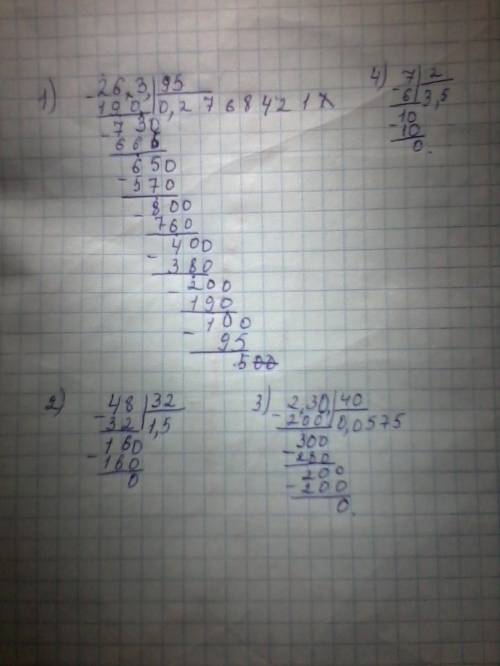 1) - 26,3, | 95
190 | 0,2768421
- 730
665
- 650
570
- 800
760
- 400
380
- 200
190
- 100
95
5
4) - 7 | 2
6 | 3,5
- 10
10
0.
2) - 48 | 32
32 | 1,5
- 160
160
0
3) - 2,30, | 40
200 | 0,0575
- 300
280
- 200
200
0.